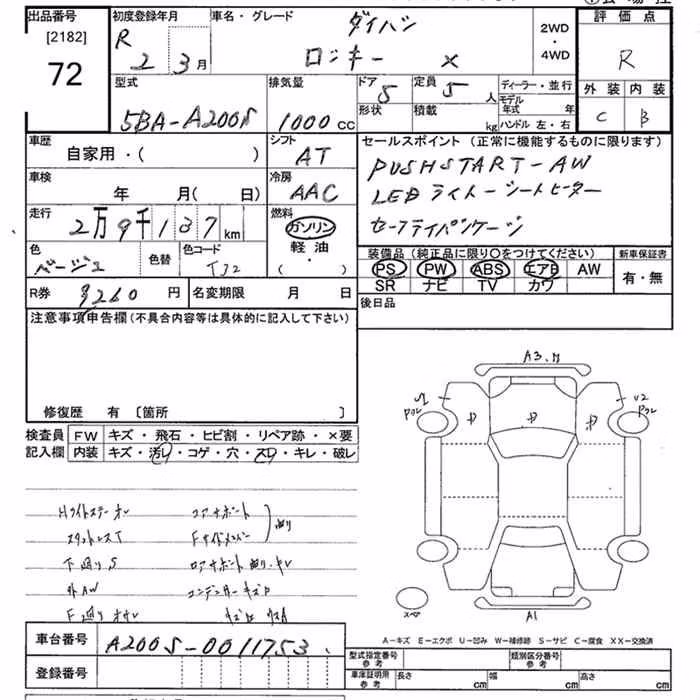 出品番号
[2182]
72
初度登録年月
R 2 3月
車名・グレード
ダイハツ
ロッキー X
2WD
・
4WD
評価点
R
外装 内装
C B
型式
5BA-A200S
排気量
1000 CC
ドア 5
形状
定員 5 人
積載 kg
ディーラー・並行
モデル
年式 年
ハンドル 左・右
車歴
自家用・( )
シフト
AT
セールスポイント (正常に機能するものに限ります)
PUSHSTART-AW
LEDライト-シートヒーター
車検
年 月( 日)
冷房
AAC
走行
2万9千137 km
燃料
ガソリン
軽油
・
( )
色
ベージュ
色替
色コード
T32
装備品 (純正品に限り○をつけてください)
新車保証書
PS PW ABS エアB AW
SR ナビ TV カワ
有・無
R券 9260 円
名変期限 月 日
後日品
注意事項申告欄(不具合内容等は具体的に記入して下さい)
修復歴 有 〔箇所 〕
検査員
記入欄
FW キズ・飛石・ヒビ割・リペア跡・×要
内装 キズ・汚れ・コゲ・穴・スレ・キレ・破レ
コアサポート
Fサイドメンバー
下廻りS
外AW
コンデンサー
A3
U2
A1
スペア
車台番号
A200S-0011753
登録番号
A-キズ E-エクボ U-凹み W-補修跡 S-サビ C-腐食 XX-交換済
型式指定番号
参考
類別区分番号
参考
車庫証明用
参考
長さ cm
幅 cm
高さ cm